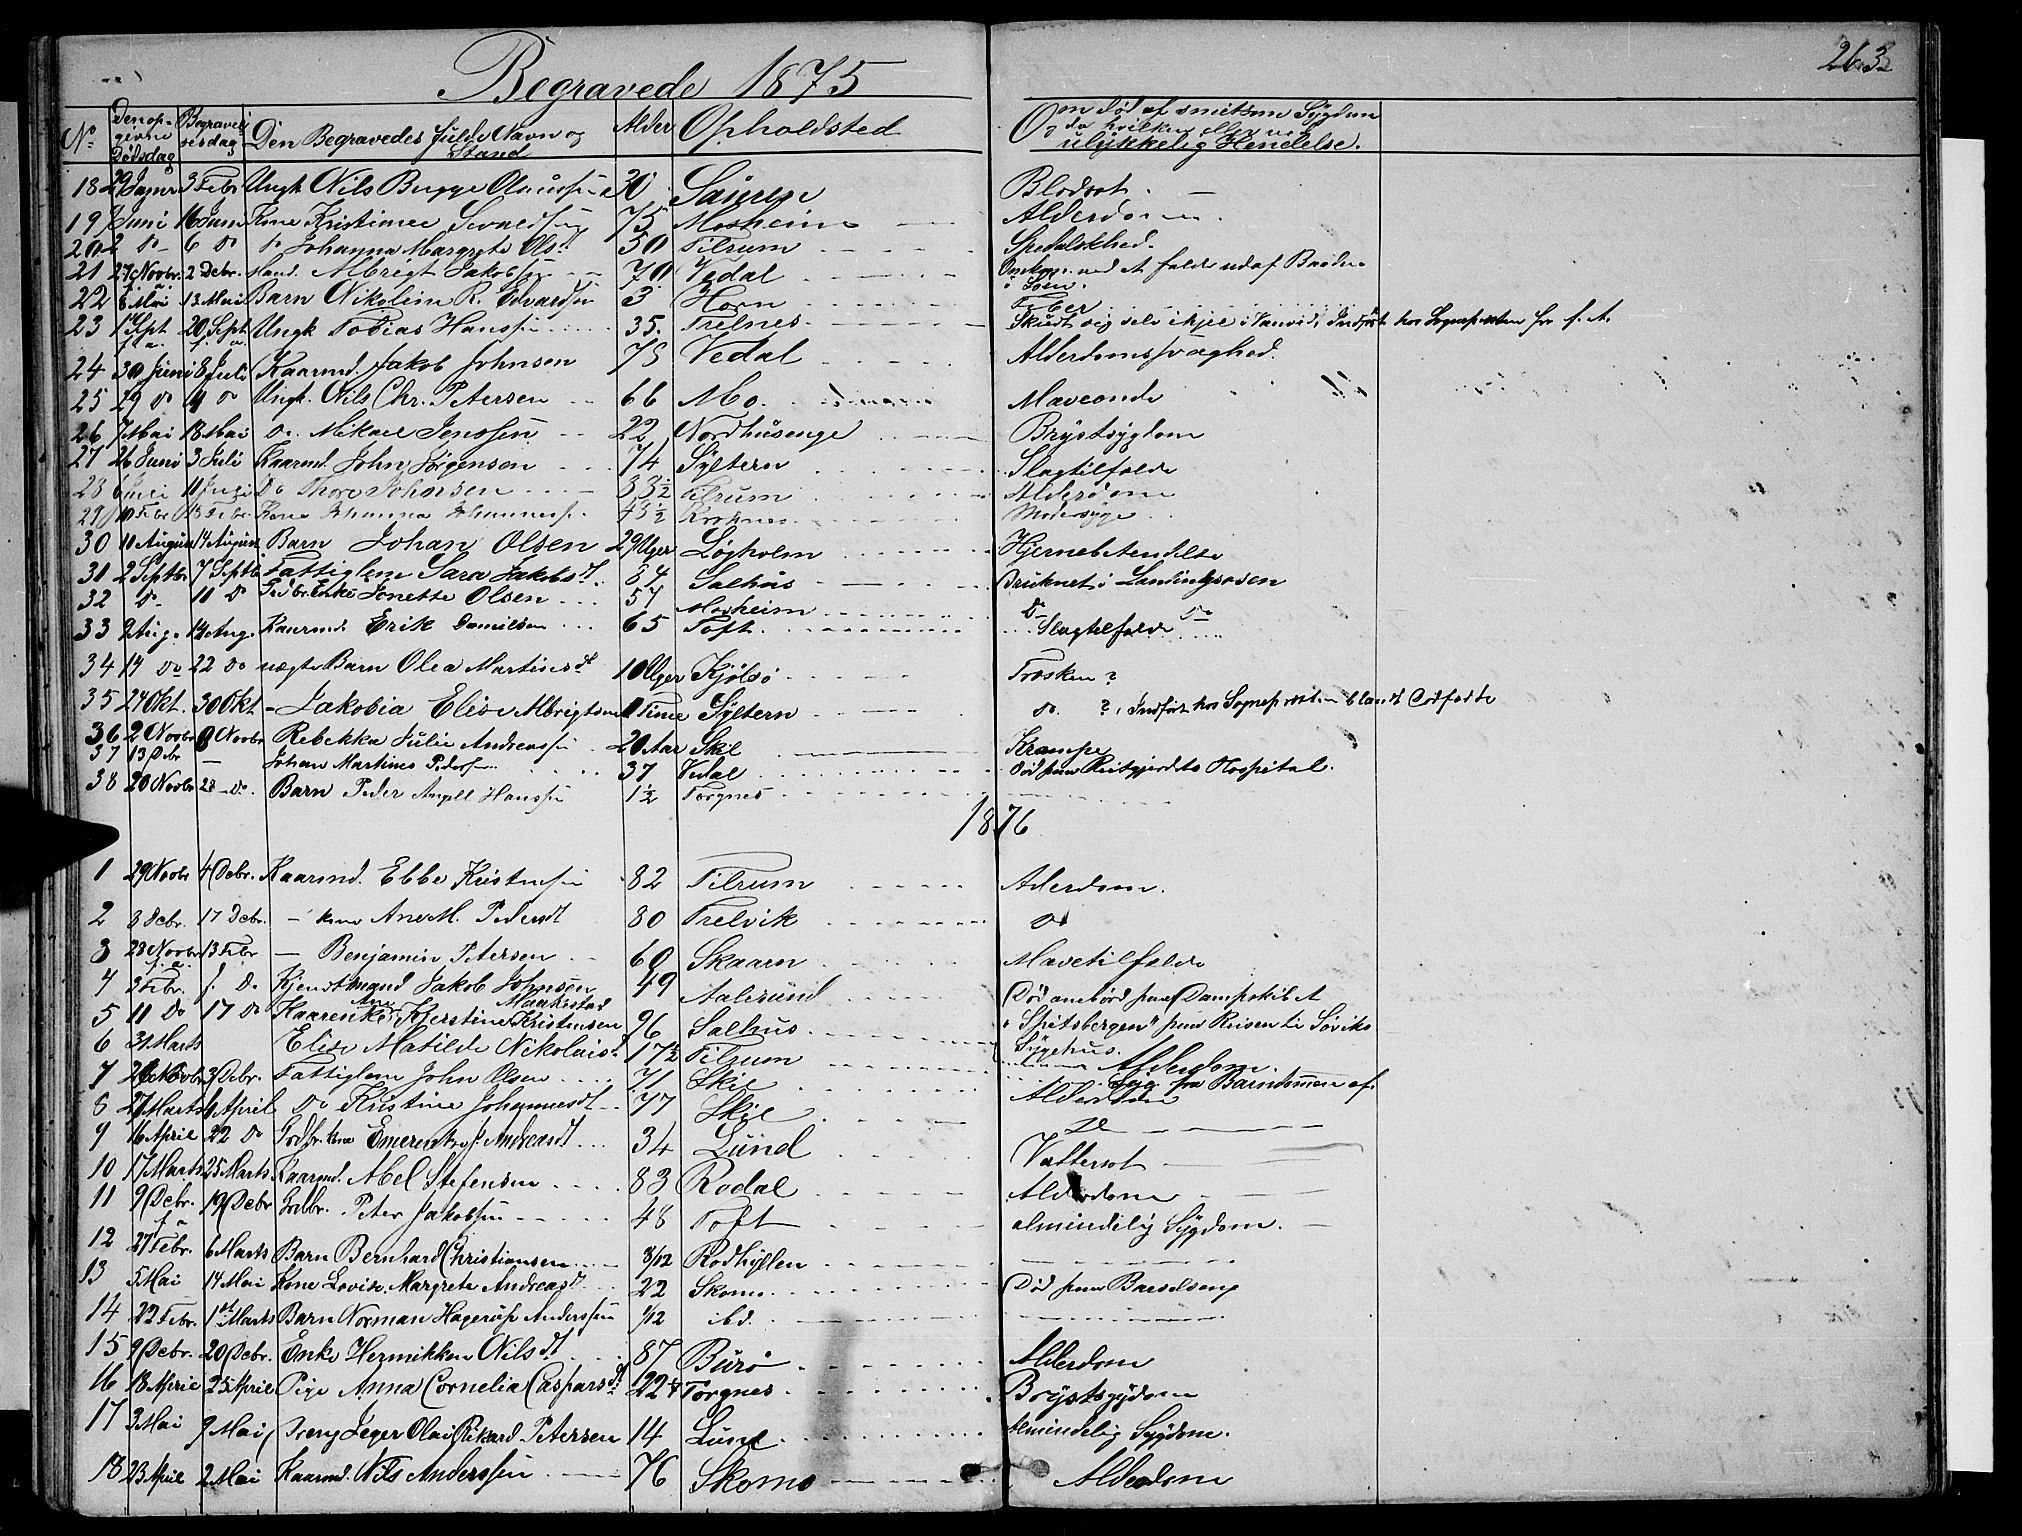 Begravede 1875
263
No Den opgivne Dødsdag Begravelsesdag Den Begravedes fulde Navn og Stand Alder Opholdsted Om død af smitsom Sygdom og da hvilken eller ved ulykkelig Hendelse.
18 29 Janr 3 Febr Ungk. Nils Bugge Olaussen 30 Sauren Blodsot.
19 Juni 16 Juni Kone Kristianee Sevaldsen 75 Mosheim Alderdom.
20 2 do 6 do do Johanna Margrete Olsdt 50 Tilrum Spedalskhed.
21 27 Novbr. 2 Debr. Albregt Jakobsen 70 Vedal Omkom ved at falde ud af Baaden i Søen.
22 8 Mai 13 Mai Barn Nikoline R. Edvardsen 3 Horn Feber
23 1 Sept f.a. 20 Sept f.a. Ungk Tobias Hanssen 35. Trelnes Skudt sig selv ihjel i Vanvid, Indført hos Sognepresten for f. A.
24 30 Juni 8 Juli Kaarmd. Jakob Johnsen 75 Vedal Alderdomssvaghed.
25 29 do 4 do Ungk. Nils Chr. Petersen 66 Mo. Maveonde
26 7 Mai 18 Mai do. Mikael Jenssen 22 Nordhusenge Brystsygdom
27 26 Juni 3 Juli Kaarmd. John Jørgensen 74 Syltern Slagtilfelde
28 6 Juli 11 Juli Do Thore Johnsen 83½ Tilrum Alderdom
29 10 Febr 15 Febr. Kone Johanna Johannesd. 43½ Modersyge
30 11 August 14 August Barn Johan Olsen 29 Uger Løgholm Hjernebetendelse
31 2 Septbr 7 Septb Fattiglem Sara Jakobsdt. 84 Salhus Druknet i
32 do. 11 do Enke Jonette Olsen 57 Mosheim do do
33 9 Aug. 14 Aug. Kaarmd. Erik Danielsen 65 Toft Slagtilfelde
34 14 do 22 do uægte Barn Olea Martinsdt 10 Uger Kjølsø Trosken?
35 24 Okt. 30 Okt - Jakobia Elise Albrigtsen 1 Time Syltern do. ?, Indført hos Sognepresten blandt Dødfødte
36 2 Novbr 8 Novbr Rebekka Julie Andreassen 20 Aar Skil Krampe
37 13 Debr — Johan Martinus Pedersen 37 Vedal død paa Reitgjerdets Hospital.
38 20 Novbr 28 do. Barn Peder Angell Hanssen 1½ Torgnes
1876
1 29 Novbr 4 Debr. Kaarmd. Ebbe Kristensen 82 Tilrum Alderdom.
2 8 Debr. 17 Debr. - kone Ane M. Pedersdt 80 Trelvik do
3 23 Novbr f.a. 13 Febr — Benjamin Petersen 60 Skaarn Mavetilfelde
4 3 Febr. f. Do Kjendtmand Jakob Johnsen Maakestad 49 Aalesund Død ombord paa Dampskibet
5 11 Do 17 Do Kaarenke Ane Kjerstine Kristensen 96 Salhus "Spitsbergen" paa Reisen til Søviks Sygehus.
6 31 Marts Elise Matilde Nikolaisd. 17½ Tilrum Alderdom.
7 26 Novbr 3 Debr. Fattiglem John Olsen 71 Skil Syg fra Barndommen af.
8 27 Marts 6 April Do Kristine Johannesdt 77 Skil Alderdom
9 16 April 22 do Grdbr. kone Emerentse J. Andreasdt 34 Lund do
10 17 Marts 25 Marts Kaarmd. Abel Stefensen 83 Rodal Vattersot
11 9 Debr. f.a 19 Debr Grdbr. Peter Jakobsen 48 Toft Alderdom
12 27 Febr. 6 Marts Barn Bernhard Christiansen 8/12 Rodhyllen almindelig Sygdom.
13 5 Mai 14 Mai Kone Lovise Margrete Andreasdt 22 Skomo Død paa Barselseng
14 22 Febr. 1st Marts Barn Norman Hagerup Anderssen 1/12 ibd.
15 9 Debr. 20 Debr. Enke Hermikken Nilsdt 87 Burø Alderdom
16 18 April 25 April Pige Anna Cornelia Caspersdt 22 Torgnes Brystsygdom
17 3 Mai 9 Mai Dreng Jeger Olai Rikard Petersen 14 Lund Almindelig Sygdom.
18 23 April 2 Mai Kaarmd. Nils Anderssen 76 Skomo Alderdom